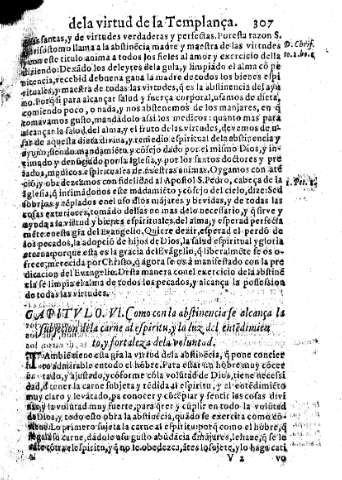 de la virtud de la Templança. 307
nas santas, y de virtudes verdaderas y perfestas. Por esta razon S.
Chrisostomo llama a la abstinẽcia madre y maestra de las virtudes
D. Chris.
como este titulo anima a todos los fieles al amor y exercicio della
diziendo: Dexãdo los deleytes dela gula, y limpiado el alma cõ pe
nitencia, recebid debuena gana la madre de todos los bienes espi
rituales, y maestra de todas las virtudes, q̃ es la abstinẽcia del ayu
no. Porq̃ si para alcançar salud y fuerça corporal, vsamos de dieta,
comiendo poco, o nada, y nos abstenemos de los manjares, en q̃
tomavamos gusto, mandãdolo assi los medicos: quanto mas para
alcançar la salud del alma, y el fruto de las virtudes, devemos de v-
sar de aquesta dieta divina, y remedio espiritual dela abstinencia y
ayuno, siendo mandamiẽto y cõsejo dado por el mismo Dios, y in-
timado y denunciado por la Iglesia, y por los santos doctores y pre
lados, medicos espirituales de nuestras animas. Oygamos con atẽ
ciõ, y obedezcamos con fidelidad al Apostol S. Pedro, cabeça de la
1. Pet. 1.
Iglesia, q̃ insinuãdonos este mãdamiẽto y cõsejo del cielo, dize: Sed
sobrios, y tẽplados en el uso dlos mãjares y bevidas, y de todas las
cosas exteriores, tomãdo dellas no mas delo necessario, y q̃ sirve y
ayuda a la virtud y bienes espirituales del alma, y esperad perfecta
mẽte en esta gr̃a del Evangelio. Quiere dezir, esperad el perdõ de
los pecados, la adopciõ de hijos de Dios, la salud espiritual y gloria
eterna: porque esta es la gracia del Evãgelio, q̃ liberalmẽte se os o-
frece; merecida por Christo, q̃ agora se os à manifestado con la pre
dicacion del Evangelio. Desta manera con el exercicio dela abstinẽ
cia se limpia el alma de todos los pecados, y alcança la possession
de todas las virtudes.
CAPITVLO. VI. Como con la abstinencia se alcança la
subjecion dela carne al espiritu, y la luz del entẽdimien
to, y fortaleza de la voluntad.
Ambiẽ tiene esta gr̃a la virtud dela abstinẽcia, q̃ pone concier
to admirable en todo el hõbre. Para estar vn hõbre muy cõcer
tado, y ajustado, y cõforme cõ la volũtad de Dios, tiene necessi
dad, d̃ tener la carne subjeta y rẽdida al espiritu, y el entẽdimiẽto
muy claro y levãtado, pa conocer y cõcebir y sentir las cosas divi
nas, y la volũtad muy fuerte, para q̃rer y cũplir en todo la volũtad
de Dios, y todo esto obra la abstinẽcia, quãdo se exercita como cõ-
viene. Lo primero sujeta la carne al espiritu: porq̃ como el hõbre, q̃
regala su carne, dãdole a su gusto abũdãcia d̃ mãjares, le haze, q̃ se le
cõtra el espiritu, y q̃ no le obedezca, ãtes lo sujete, y lo haga cati
V 2 vo